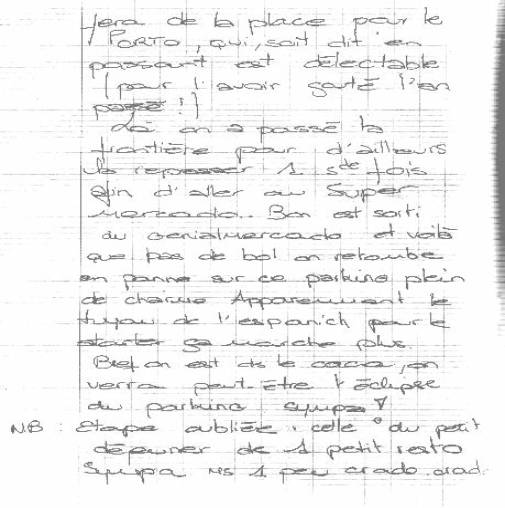 fera de la place pour le
PORTO, qui, soit dit en
passant est délectable
(pour l'avoir goûté l'an
passé !)
Là on a passé la
frontière pour d'ailleurs
la repasser 1 sde fois
afin d'aller au Super
mercado.. Bon est sorti
du genialmercado et voilà
que pas de bol on retombe
en panne sur ce parking plein
de charme Apparemment le
tuyau de l'espanich pour le
starter ça marche plus.
Bref on est ds le caca, on
verra peut être l'éclipse
du parking sympa
NB : Etape oubliée : celle du petit
déjeuner de 1 petit resto
Sympa ms 1 peu crado. crad.